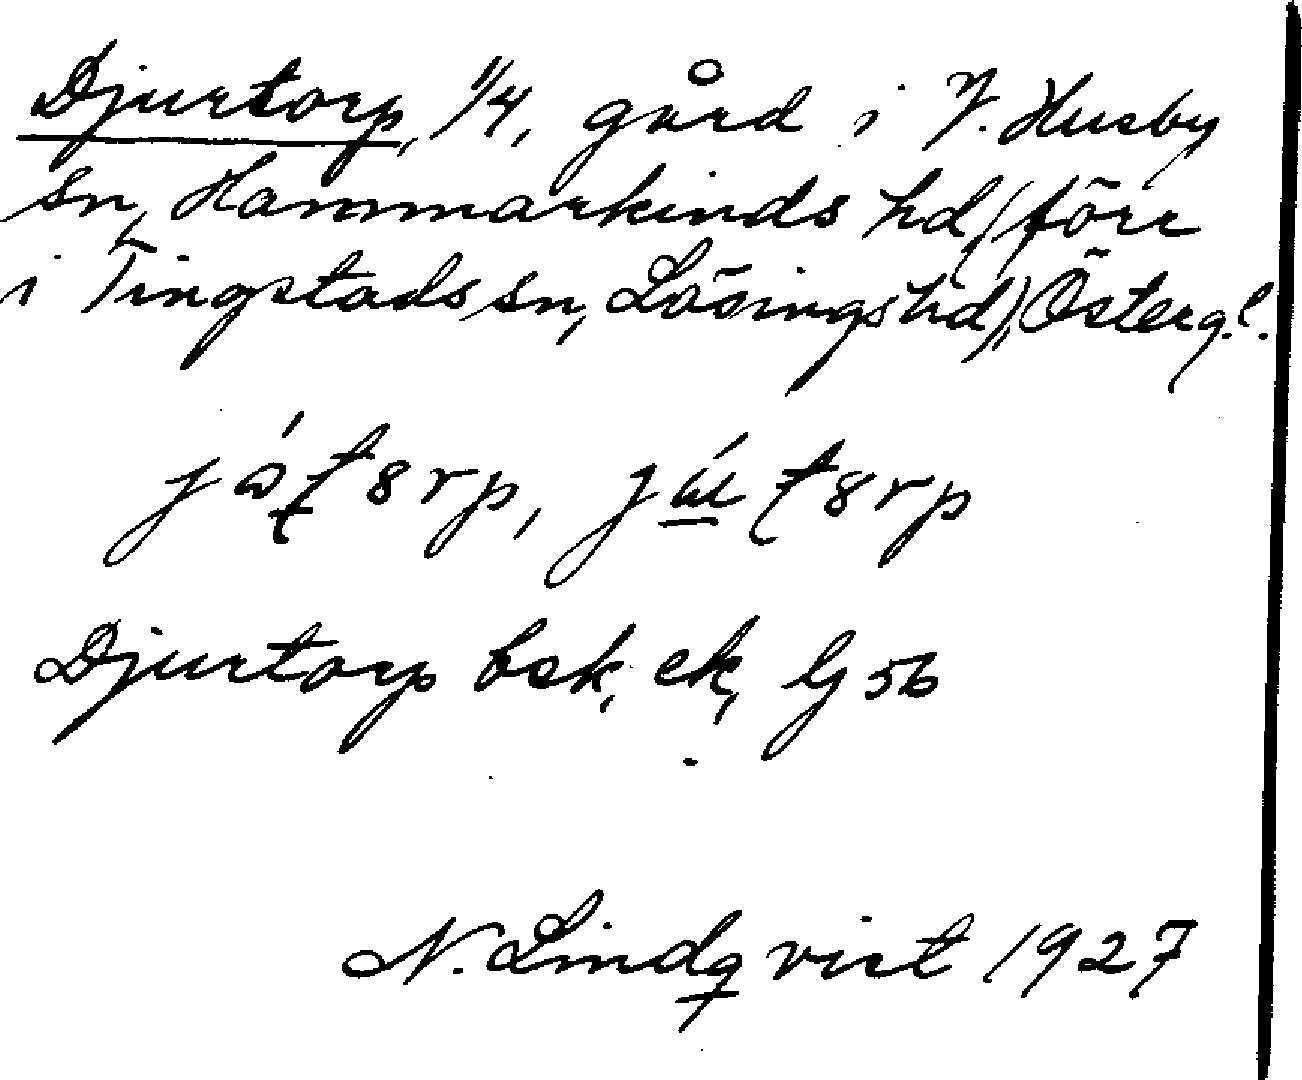 Djurtorp, 1/4, gård i V. Husby
sn, Hammarkinds hd (förr
i Tingstads sn, Lösings hd), Österg.l.
Djurtorp bsk, ek, Gj 56
N. Lindqvist 1927